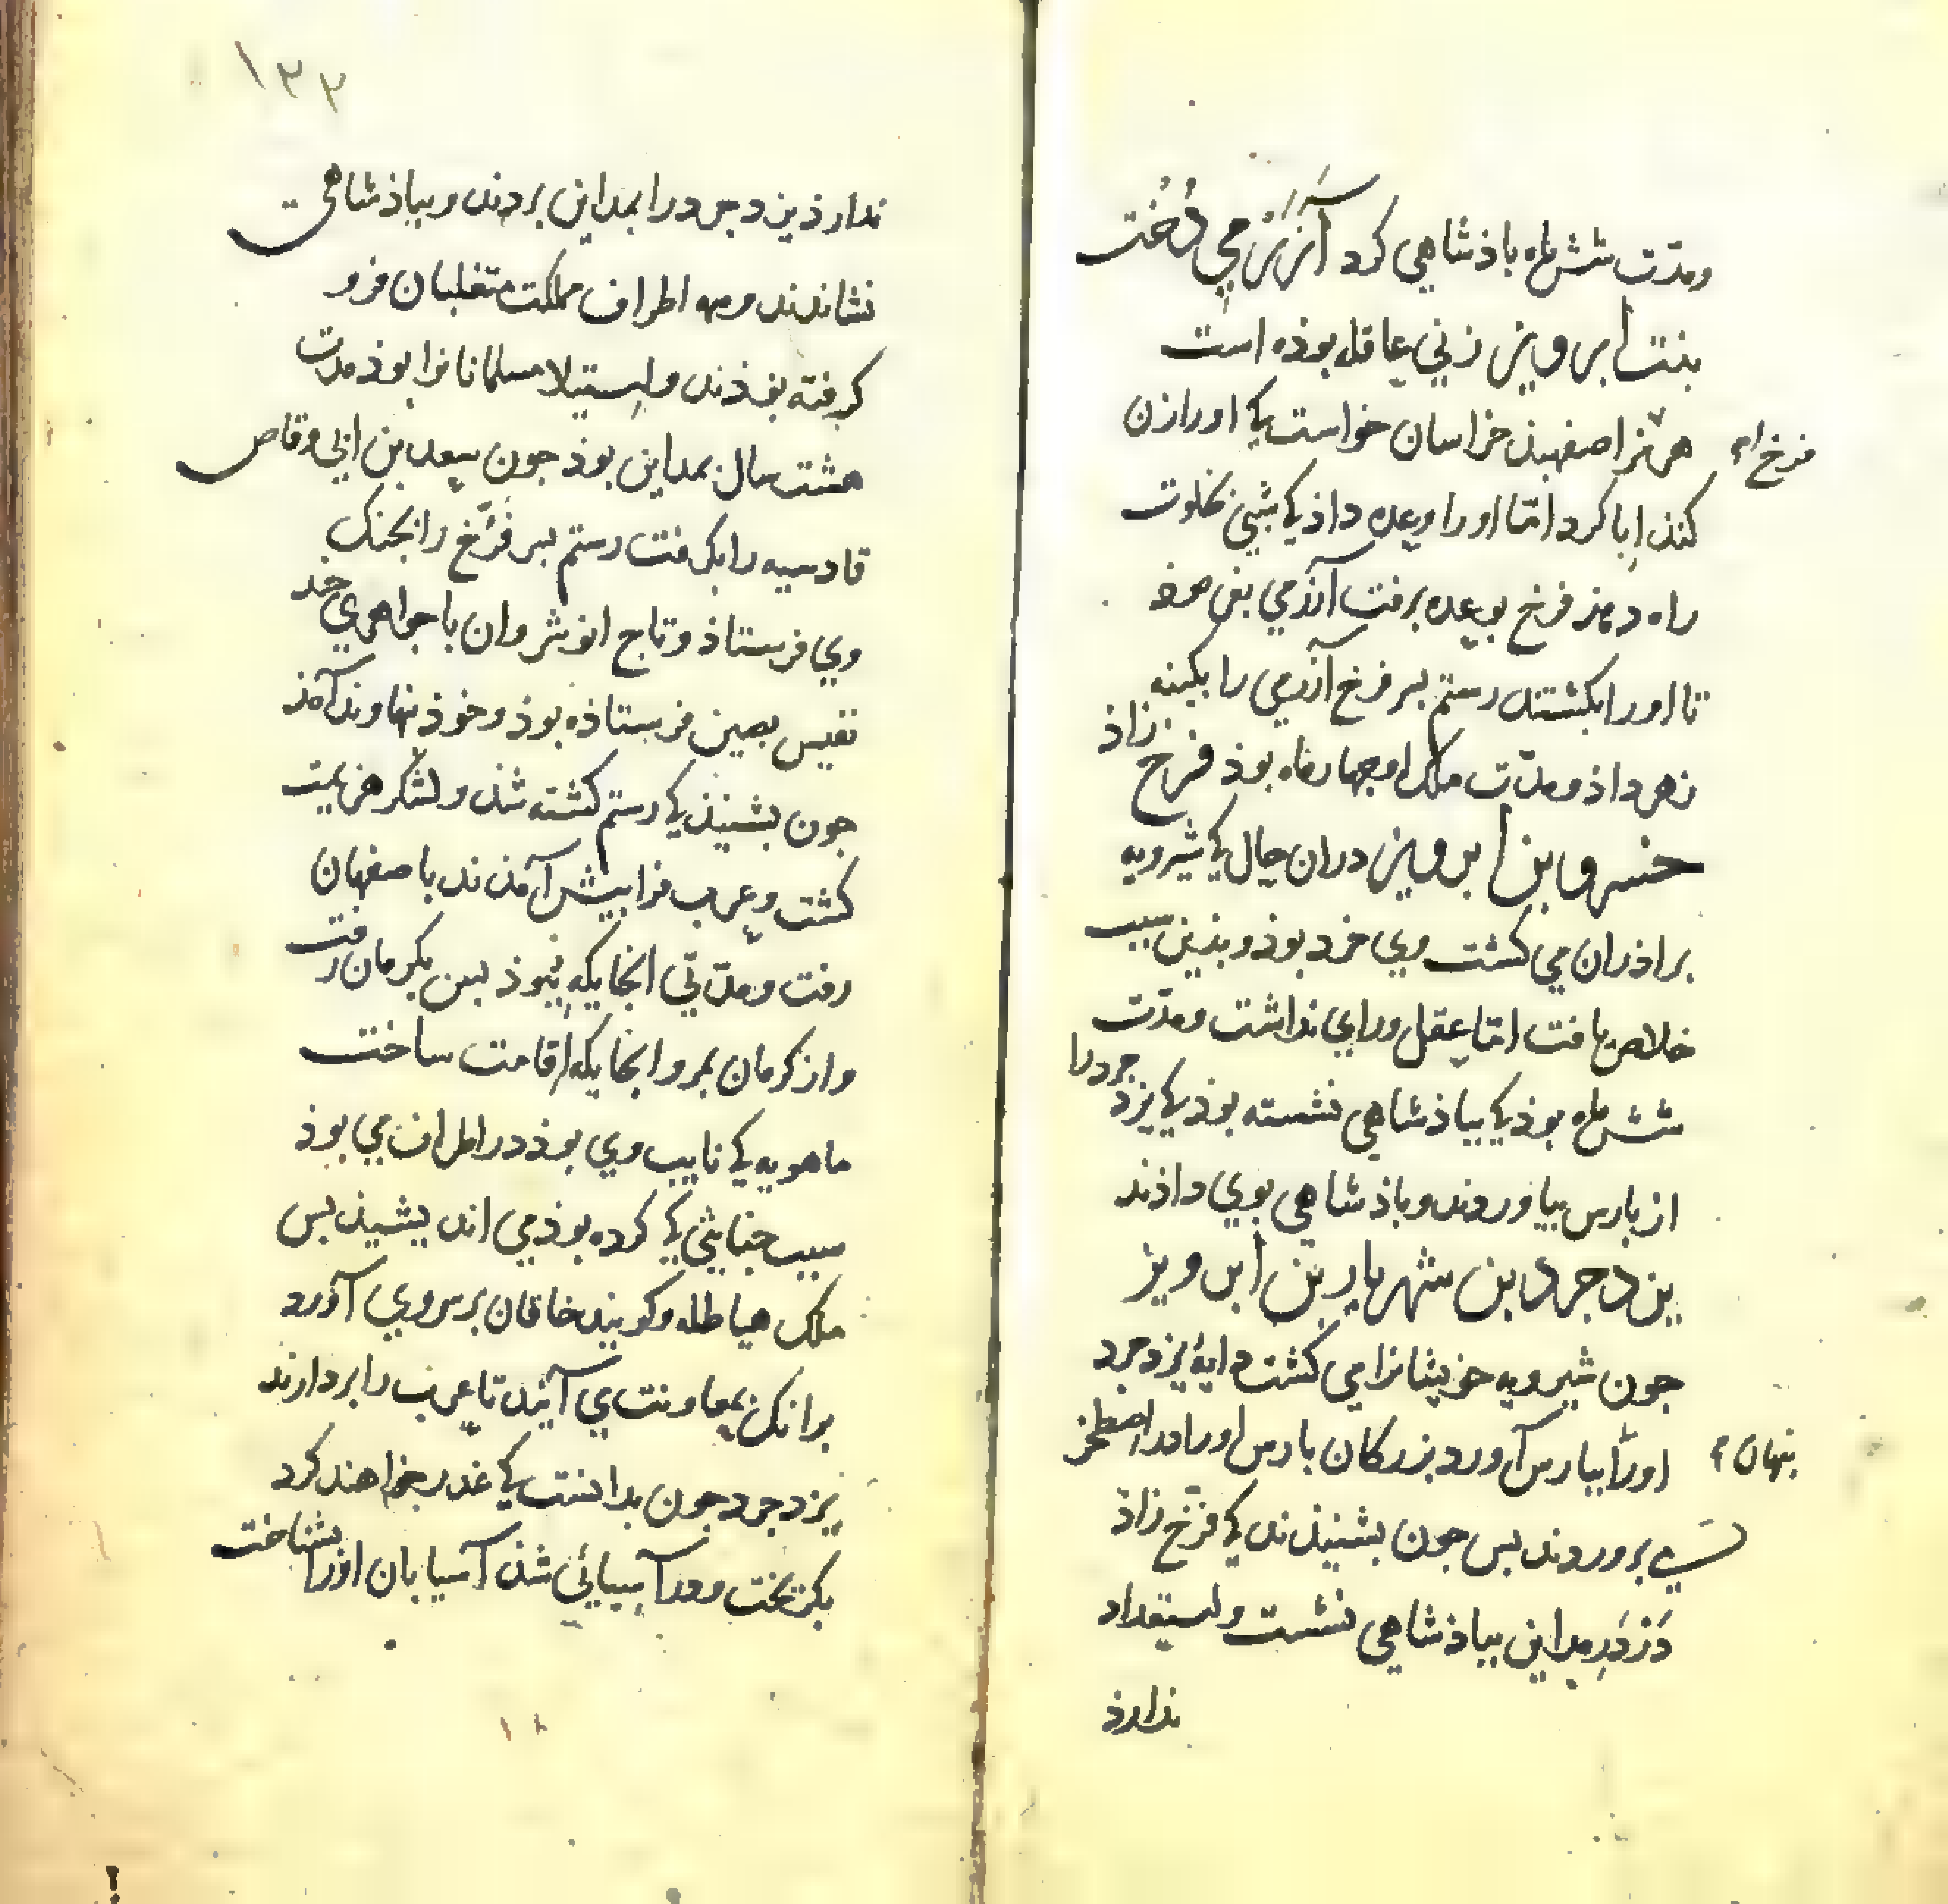 ومدّت شش ماه باذشاهي كرد آزَرْمي دُخت
بنت ابرويز زني عاقل بوذه است
فرخ
هرمز اصفهبذ خراسان خواست كي اورا زن
كنذ ابا كرد امّا اورا وعده داذ كي شبي بخلوت
راه دهم فرخ بوعده برفت آزرمي بفرموذ
تا اورا بكشتند رستم بسر فرخ آزرمي را بكينه
زهر داذ ومدّت ملك او جهار ماه بوذ فرخ زاذ
خسرو بن ابرويز دران حال كي شيرويه
براذران مي كشت وي خرد بوذ وبذين سبب
خلاص يافت امّا عقل وراي نداشت ومدّت
شش ماه بوذ كي بباذشاهي نشسته بوذ كي يزدجرد را
از بارس بياوردند وباذشاهي بوي داذند
يزدجرد بن شهريار بن ابرويز
جون شيرويه خويشانرا مي كشت دايهٔ يزدجرد
بنهان
اورا ببارس آورد بزركان بارس اورا در اصطخر
مي بروردند بس جون بشنيذند كي فرّخ زاذ
در مداين بباذشاهي نشست واستعداد
ندارذ
١٣٣
ندارذ يزدجرد را بمداين بردند وبباذشاهي
نشاندند وهمه اطراف مملكت متغلبان فرو
كرفته بوذند واستيلا مسلمانانرا بوذ مدت
هشت سال بمداين بوذ جون سعد بن ابي وقاص
قادسيه را بكرفت رستم بسر فرّخ را بجنك
وي فرستاذ وتاج انوشروان با جواهري جند
نفيس بصين فرستاذه بوذ وخوذ بنهاوند آمذ
جون بشنيذ كي رستم كشته شذ ولشكر هزيمت
كشت وعرب فرابيش آمذند باصفهان
رفت ومدّتي آنجايكه ببوذ بس بكرمان رفت
واز كرمان بمرو آنجايكه اقامت ساخت
ماهويه كي نايب وي بوذ در اطراف مي بوذ
سبب جنايتي كي كرده بوذ مي انديشيذ بس
ملك هياطله وكويند خاقان بر سر وي آورد
برانك بمعاونت مي آيند تا عرب را بردارند
يزدجرد جون بدانست كي غدر خواهند كرد
بكريخت ودر آسيائي شذ آسيابان اورا بشناخت